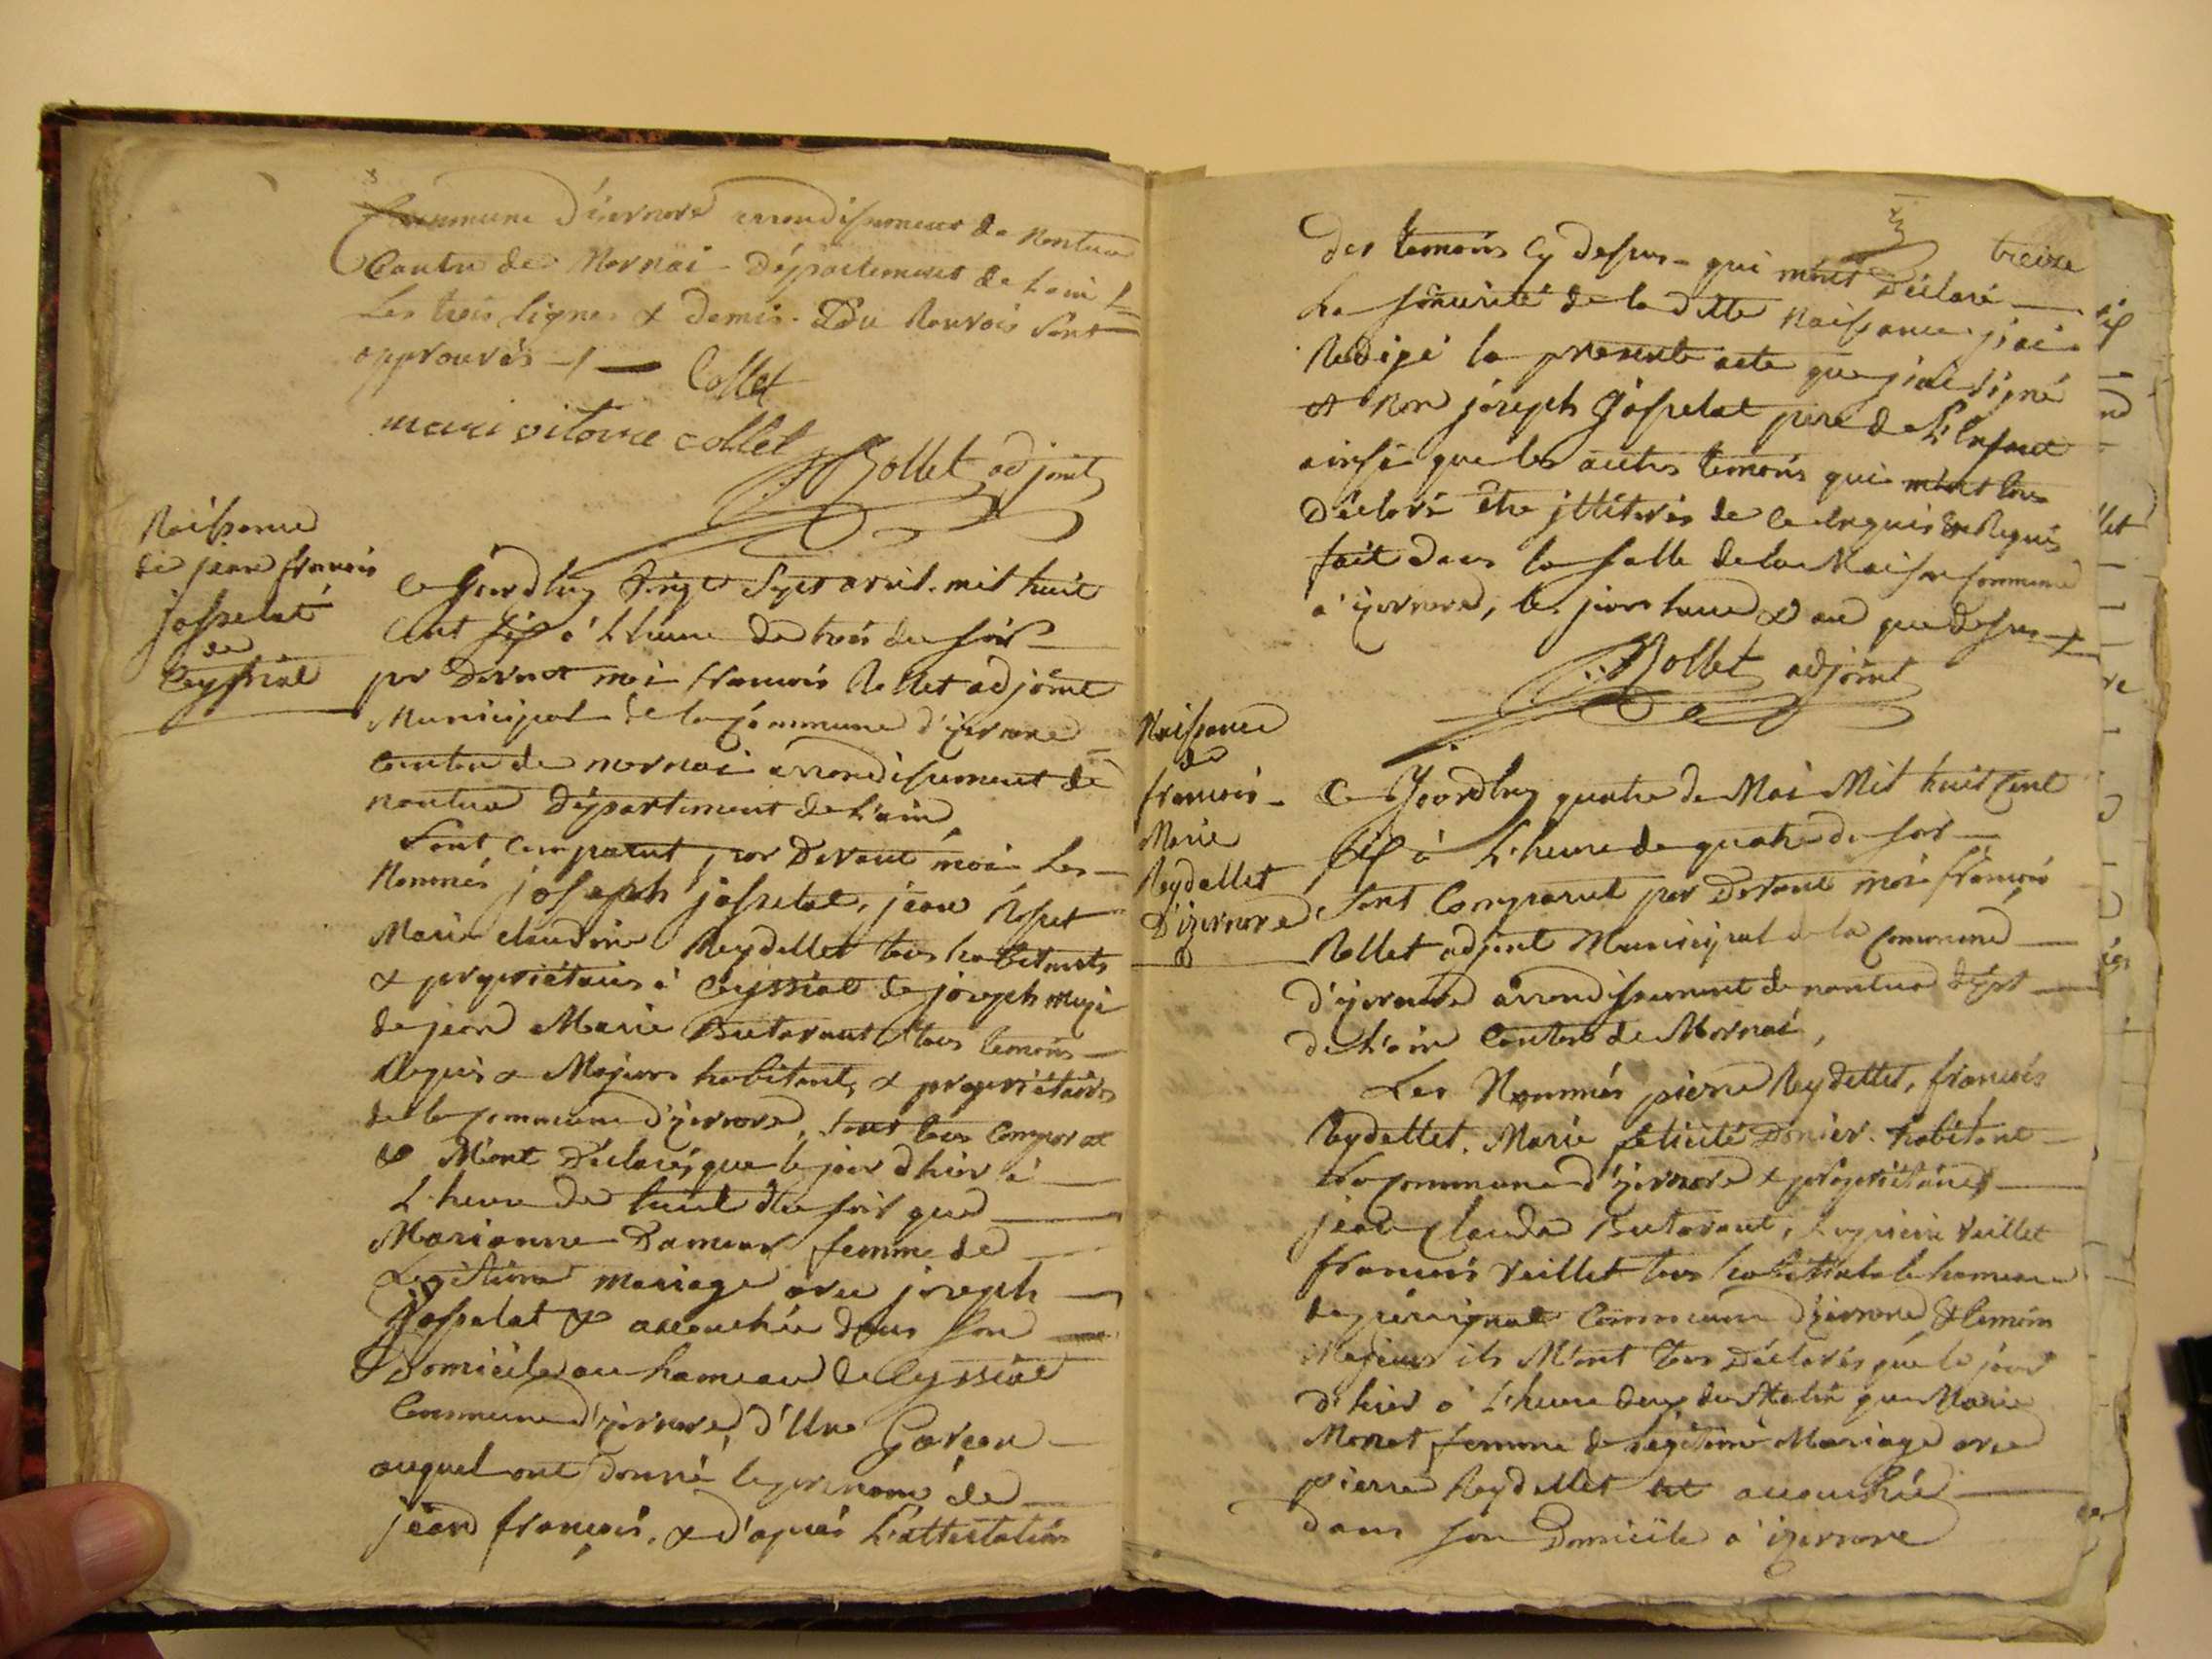 Commune d'izernore arrondissement de Nantua
Canton de Mornai Département de Lain
Les trois lignes & demis. Du Renvois Sont
approuvés -/- Collet
marivitoire collet
Rollet adjoint
Naissance
de jean francois
josselat
de
Ceyssiat
Ce Jourdhuy vingt Sept avril. mil huit
Cent six a L'heure de trois du soir
par Devant moi francois Rollet adjoint
Municipal de la Commune d'izernore
Canton de mornai arrondissement de
nantua Département de L'ain,
Sont Comparut, par Devant moi Les
Nommés joseph josselat, jean
Marie claudine Reydellet tous habitants
& propriétaires à Ceyssiat de joseph
de jean Marie Butavant tous temoins
Requis & Majeurs habitants & propriétaires
de la commune d'izernore, sont tous Comparut
& M'ont Déclarés que le jour dhier à
L'heure de huit du soir que
Marianne femme de
Legitime mariage avec joseph
Josselat & accouchée dans son
Domicile au hameau de Ceyssiat
Commune d'izernore, d'Un Garcon
auquel ont donné le prenom de
jean françois. & d'apres L'attestation
treize
des temoins Cy dessus - qui m'ont Déclaré
La sincerité de la ditte Naissance j'ai
Redigé la presente acte que j'ai signé
& Non joseph Josselat pere de L'Enfant
ainsi que les autres temoins qui m'ont tous
Déclaré être illiterés de ce Enquis & Requis
fait dans la salle de la Maison commune
a izernore, les jour heure & an que dessus
Rollet adjoint
Naissance
de
francois
Marie
Reydellet
D'izernore
Ce Jourdhuy quatre de Mai Mil huit Cent
six à L'heure de quatre du soir
Sont Comparut par Devant moi francois
Rollet adjoint Municipal de la Commune
d'izernore arrondissement de nantua dépt
de L'ain Canton de Mornai,
Les Nommés pierre Reydellet, francois
Reydellet. Marie felicité habitant
La commune d'izernore & propriétaires
jean Claude Butavant, Vuillet
francois Vuillet tous habitants le hameau
de perignat Commune d'izernore & temoin
Majeurs ils M'ont tous Déclarés que le jour
d'hier a L'heure deux du Matin que Marie
Monet femme de Légitime Mariage avec
pierre Reydellet est accouchée
dans son Domicile a izernore